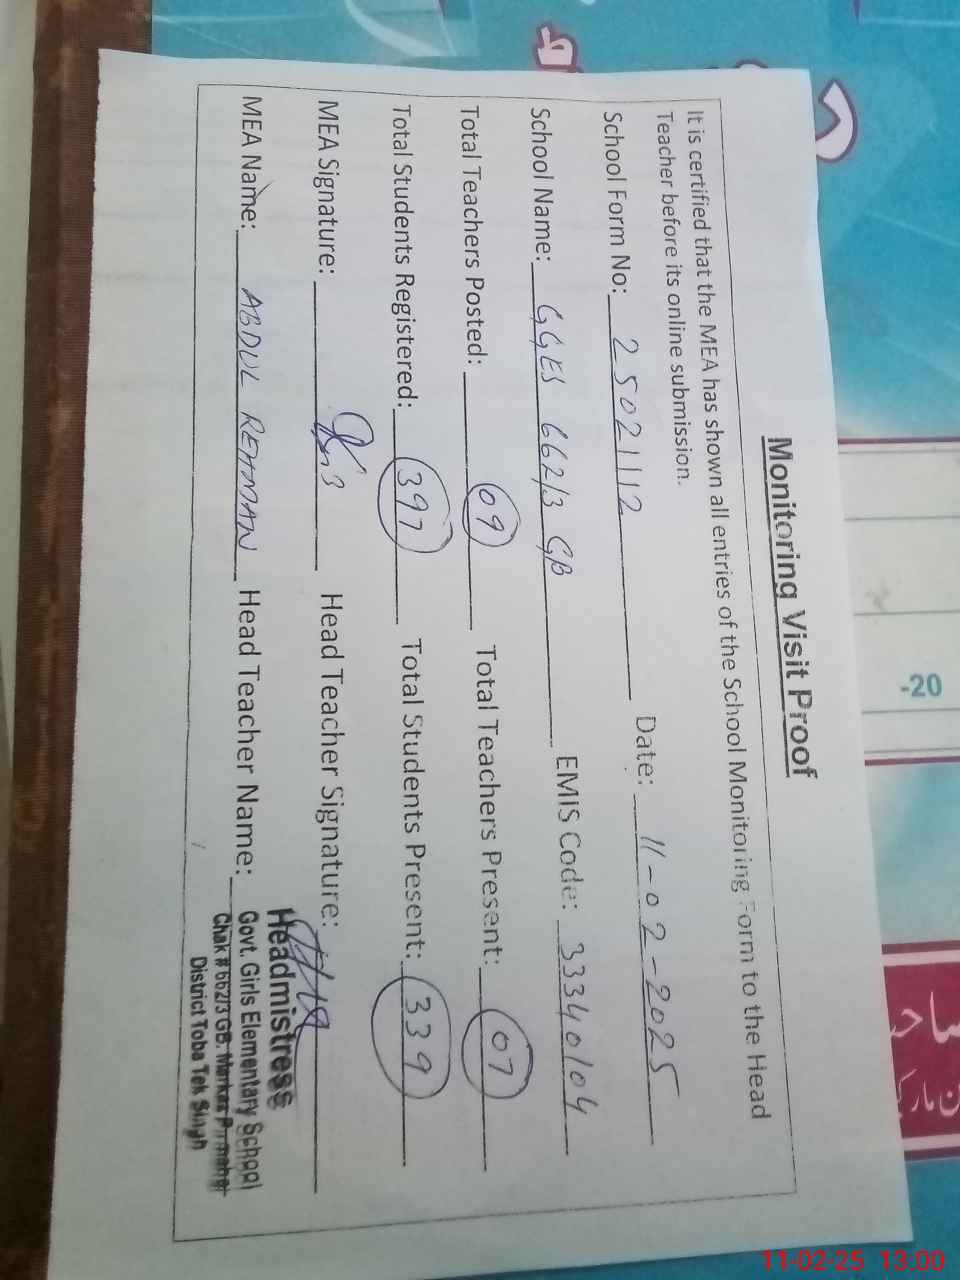 Monitoring Visit Proof
It is certified that the MEA has shown all entries of the School Monitoring Form to the Head
Teacher before its online submission.
School Form No: 25021112 Date: 11-02-2025
School Name: GGES 662/3 GB EMIS Code: 33340104
Total Teachers Posted: 09 Total Teachers Present: 07
Total Students Registered: 397 Total Students Present: 339
MEA Signature: Head Teacher Signature:
MEA Name: ABDUL REHMAN Head Teacher Name:
Headmistress
Govt. Girls Elementary School
Chak # 662/3 GB. Markaz
District Toba Tek Singh
-20
11-02-25 13:00